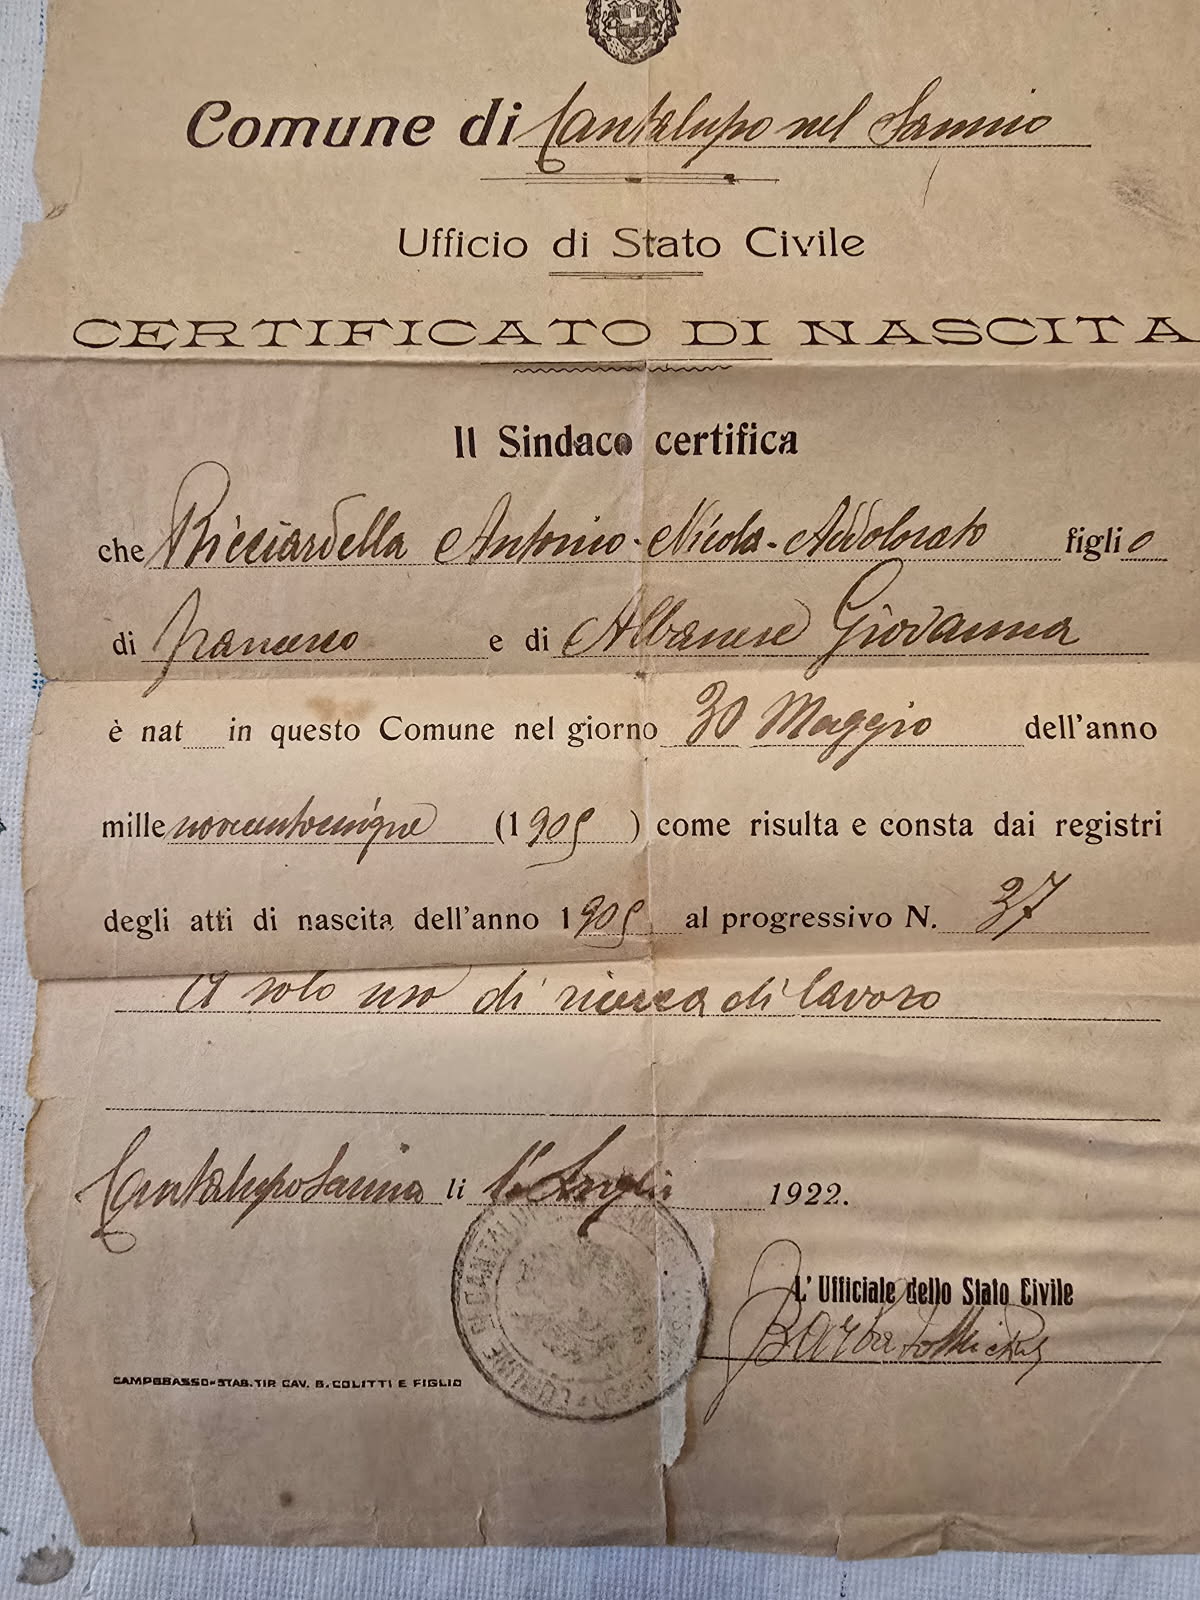 Comune di Cantalupo nel Sannio
Ufficio di Stato Civile
CERTIFICATO DI NASCITA
Il Sindaco certifica
che Ricciardella Antonio-Nicola-Addolorato figlio
di Francesco e di Albanese Giovanna
è nat in questo Comune nel giorno 30 Maggio dell'anno
mille novecentocinque (1905) come risulta e consta dai registri
degli atti di nascita dell'anno 1905 al progressivo N. 37
A solo uso di ricerca di lavoro
Cantalupo Sannio li 1° Luglio 1922.
L'Ufficiale dello Stato Civile
Barbato
CAMPOBASSO-STAB. TIP. CAV. B. COLITTI E FIGLIO